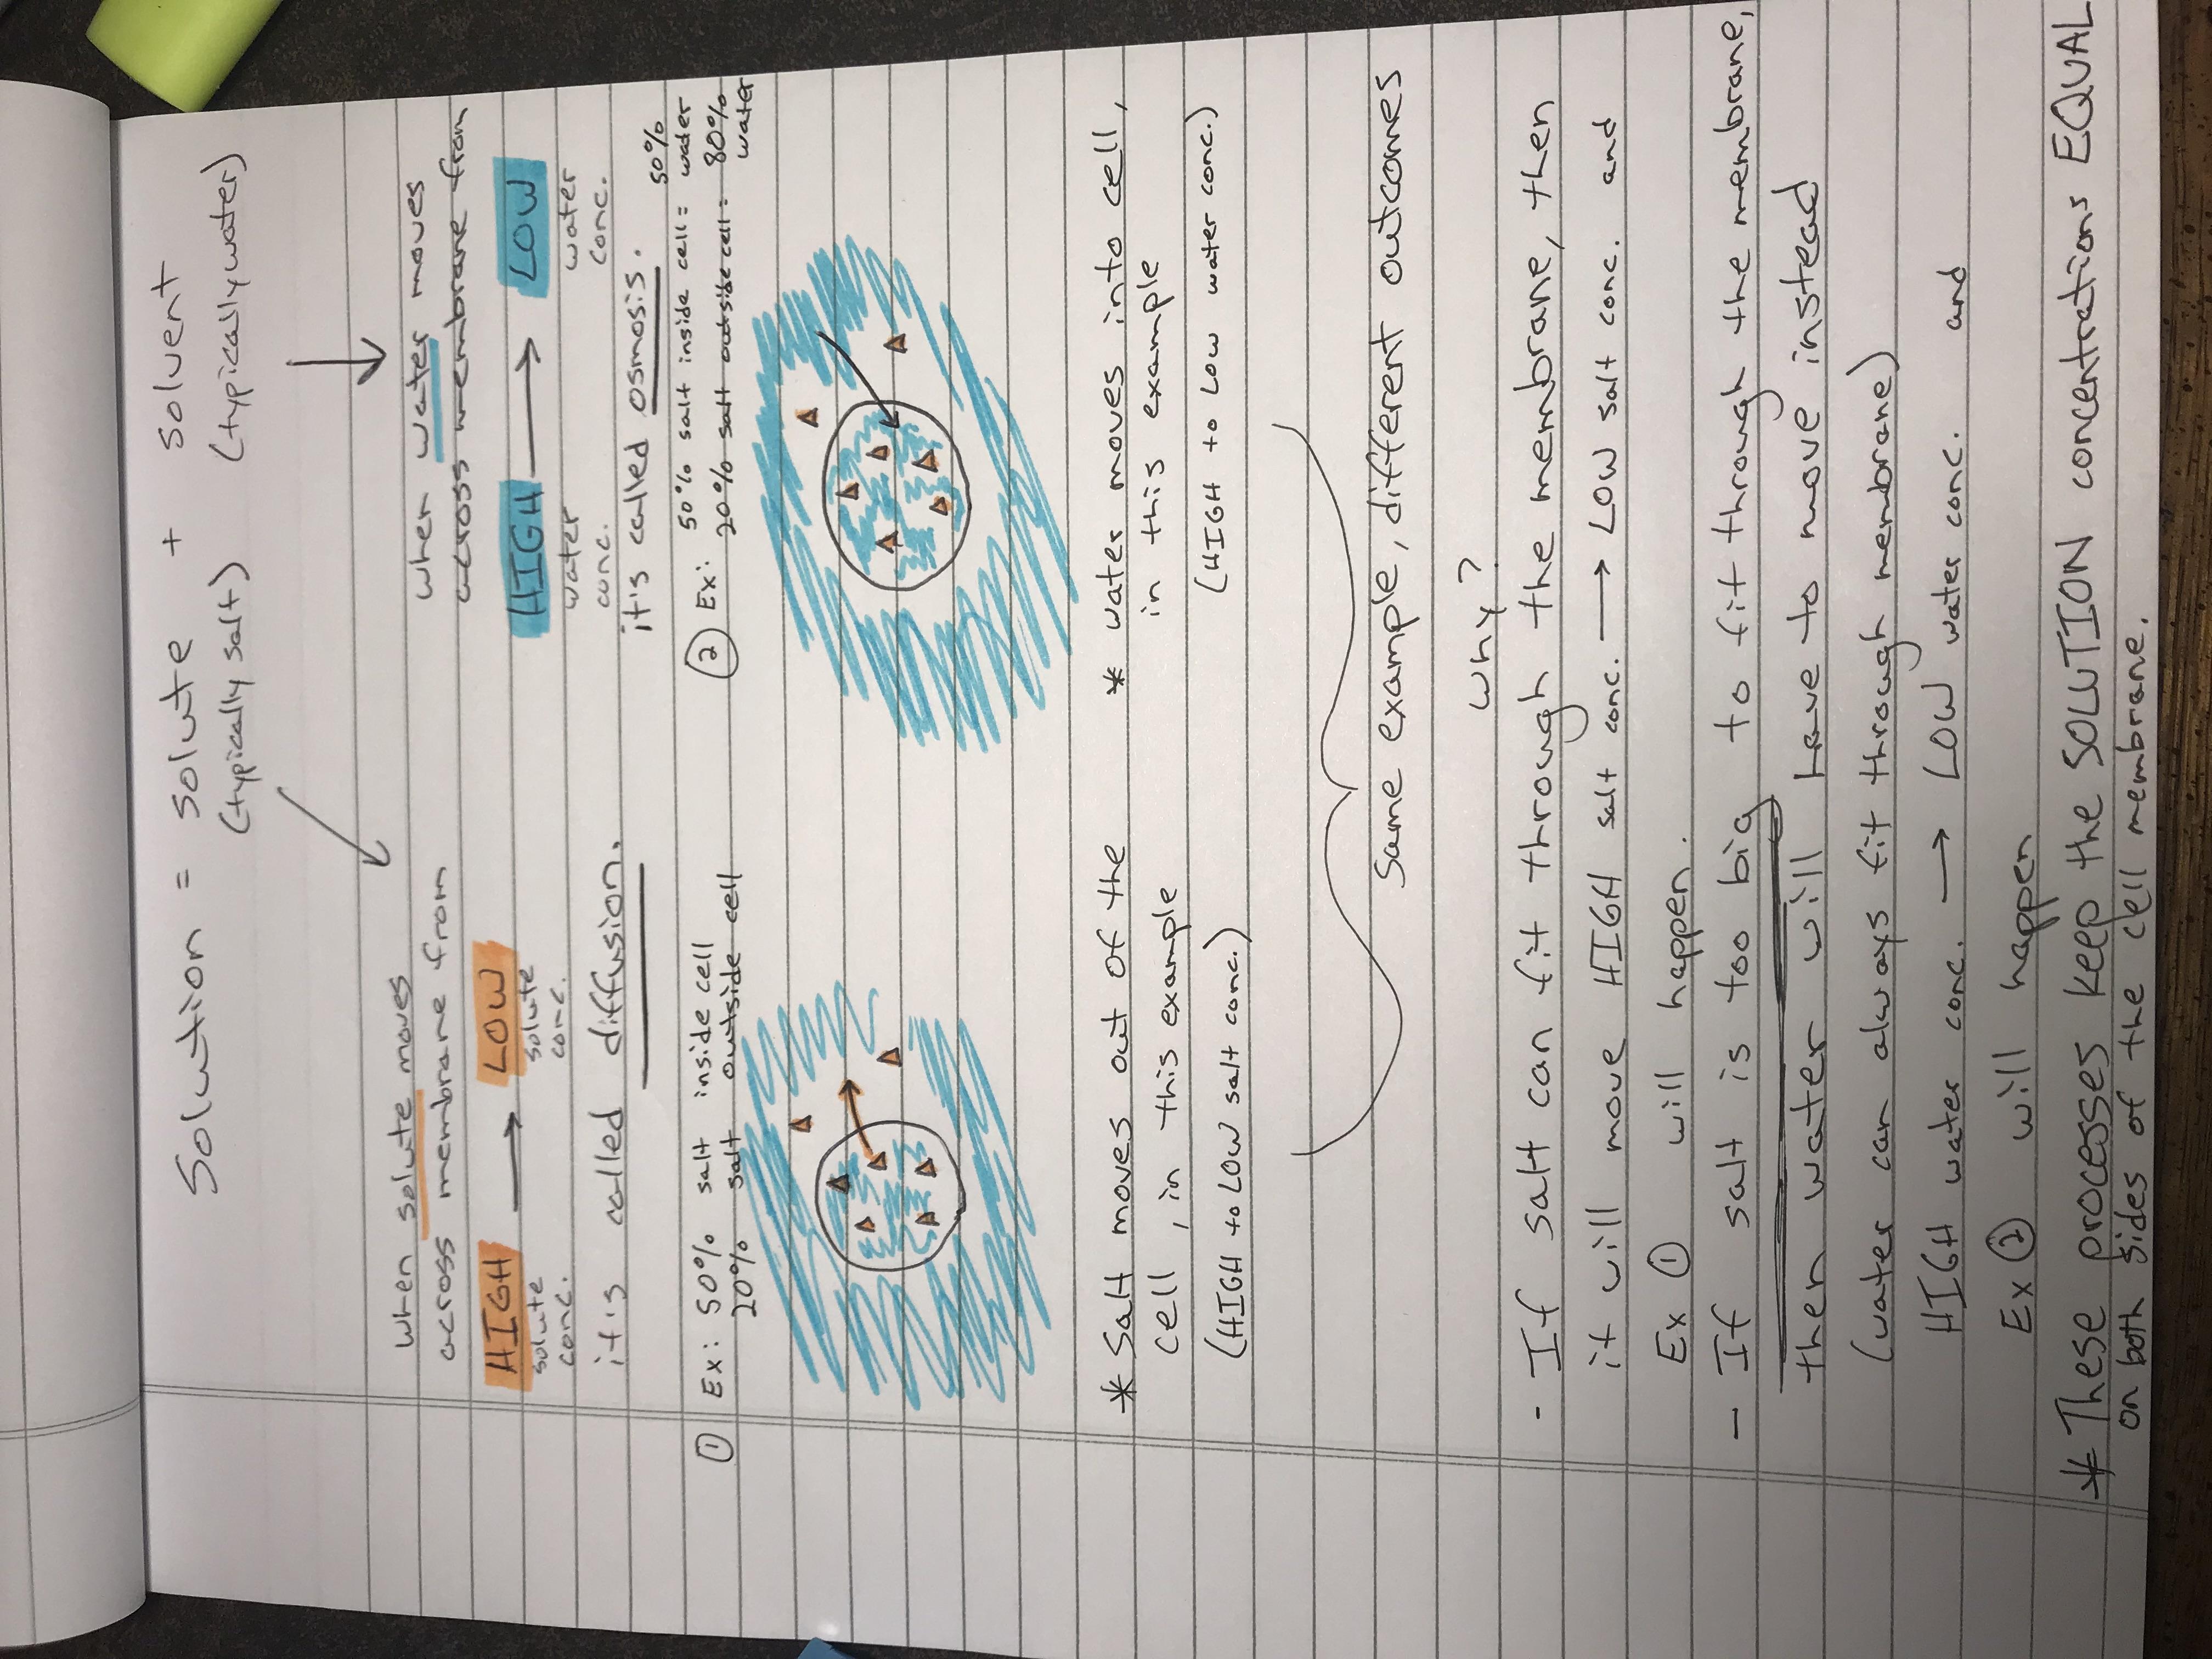 Solution = solute + solvent
(typically salt) (typically water)
when solute moves
across membrane from
HIGH → LOW
solute solute
conc. conc.
it is called diffusion.
① Ex: 50% salt inside cell
20% salt outside cell
* Salt moves out of the
cell, in this example
(HIGH to LOW salt conc.)
when water moves
across membrane from
HIGH → LOW
water water
conc. conc.
it's called osmosis.
② Ex: 50% salt inside cell = 50% water
20% salt outside cell = 80% water
* water moves into cell,
in this example
(HIGH to LOW water conc.)
Same example, different outcomes
why?
- If salt can fit through the membrane, then
it will move HIGH salt conc. → LOW salt conc. and
Ex ① will happen.
- If salt is too big to fit through the membrane,
then water will have to move instead
(water can always fit through membrane)
HIGH water conc. → LOW water conc. and
Ex ② will happen
* These processes keep the SOLUTION concentrations EQUAL
on both sides of the cell membrane.